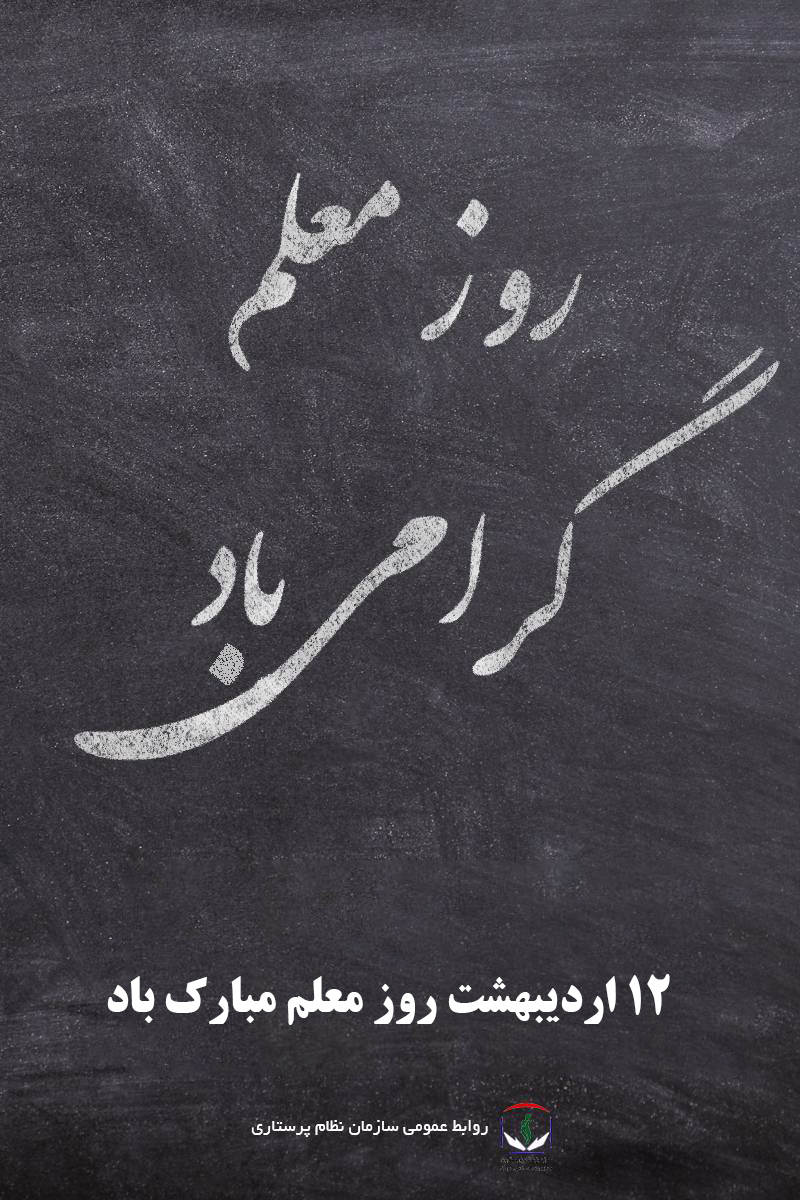 روز معلم
گرامی باد
۱۲ اردیبهشت روز معلم مبارک باد
روابط عمومی سازمان نظام پرستاری